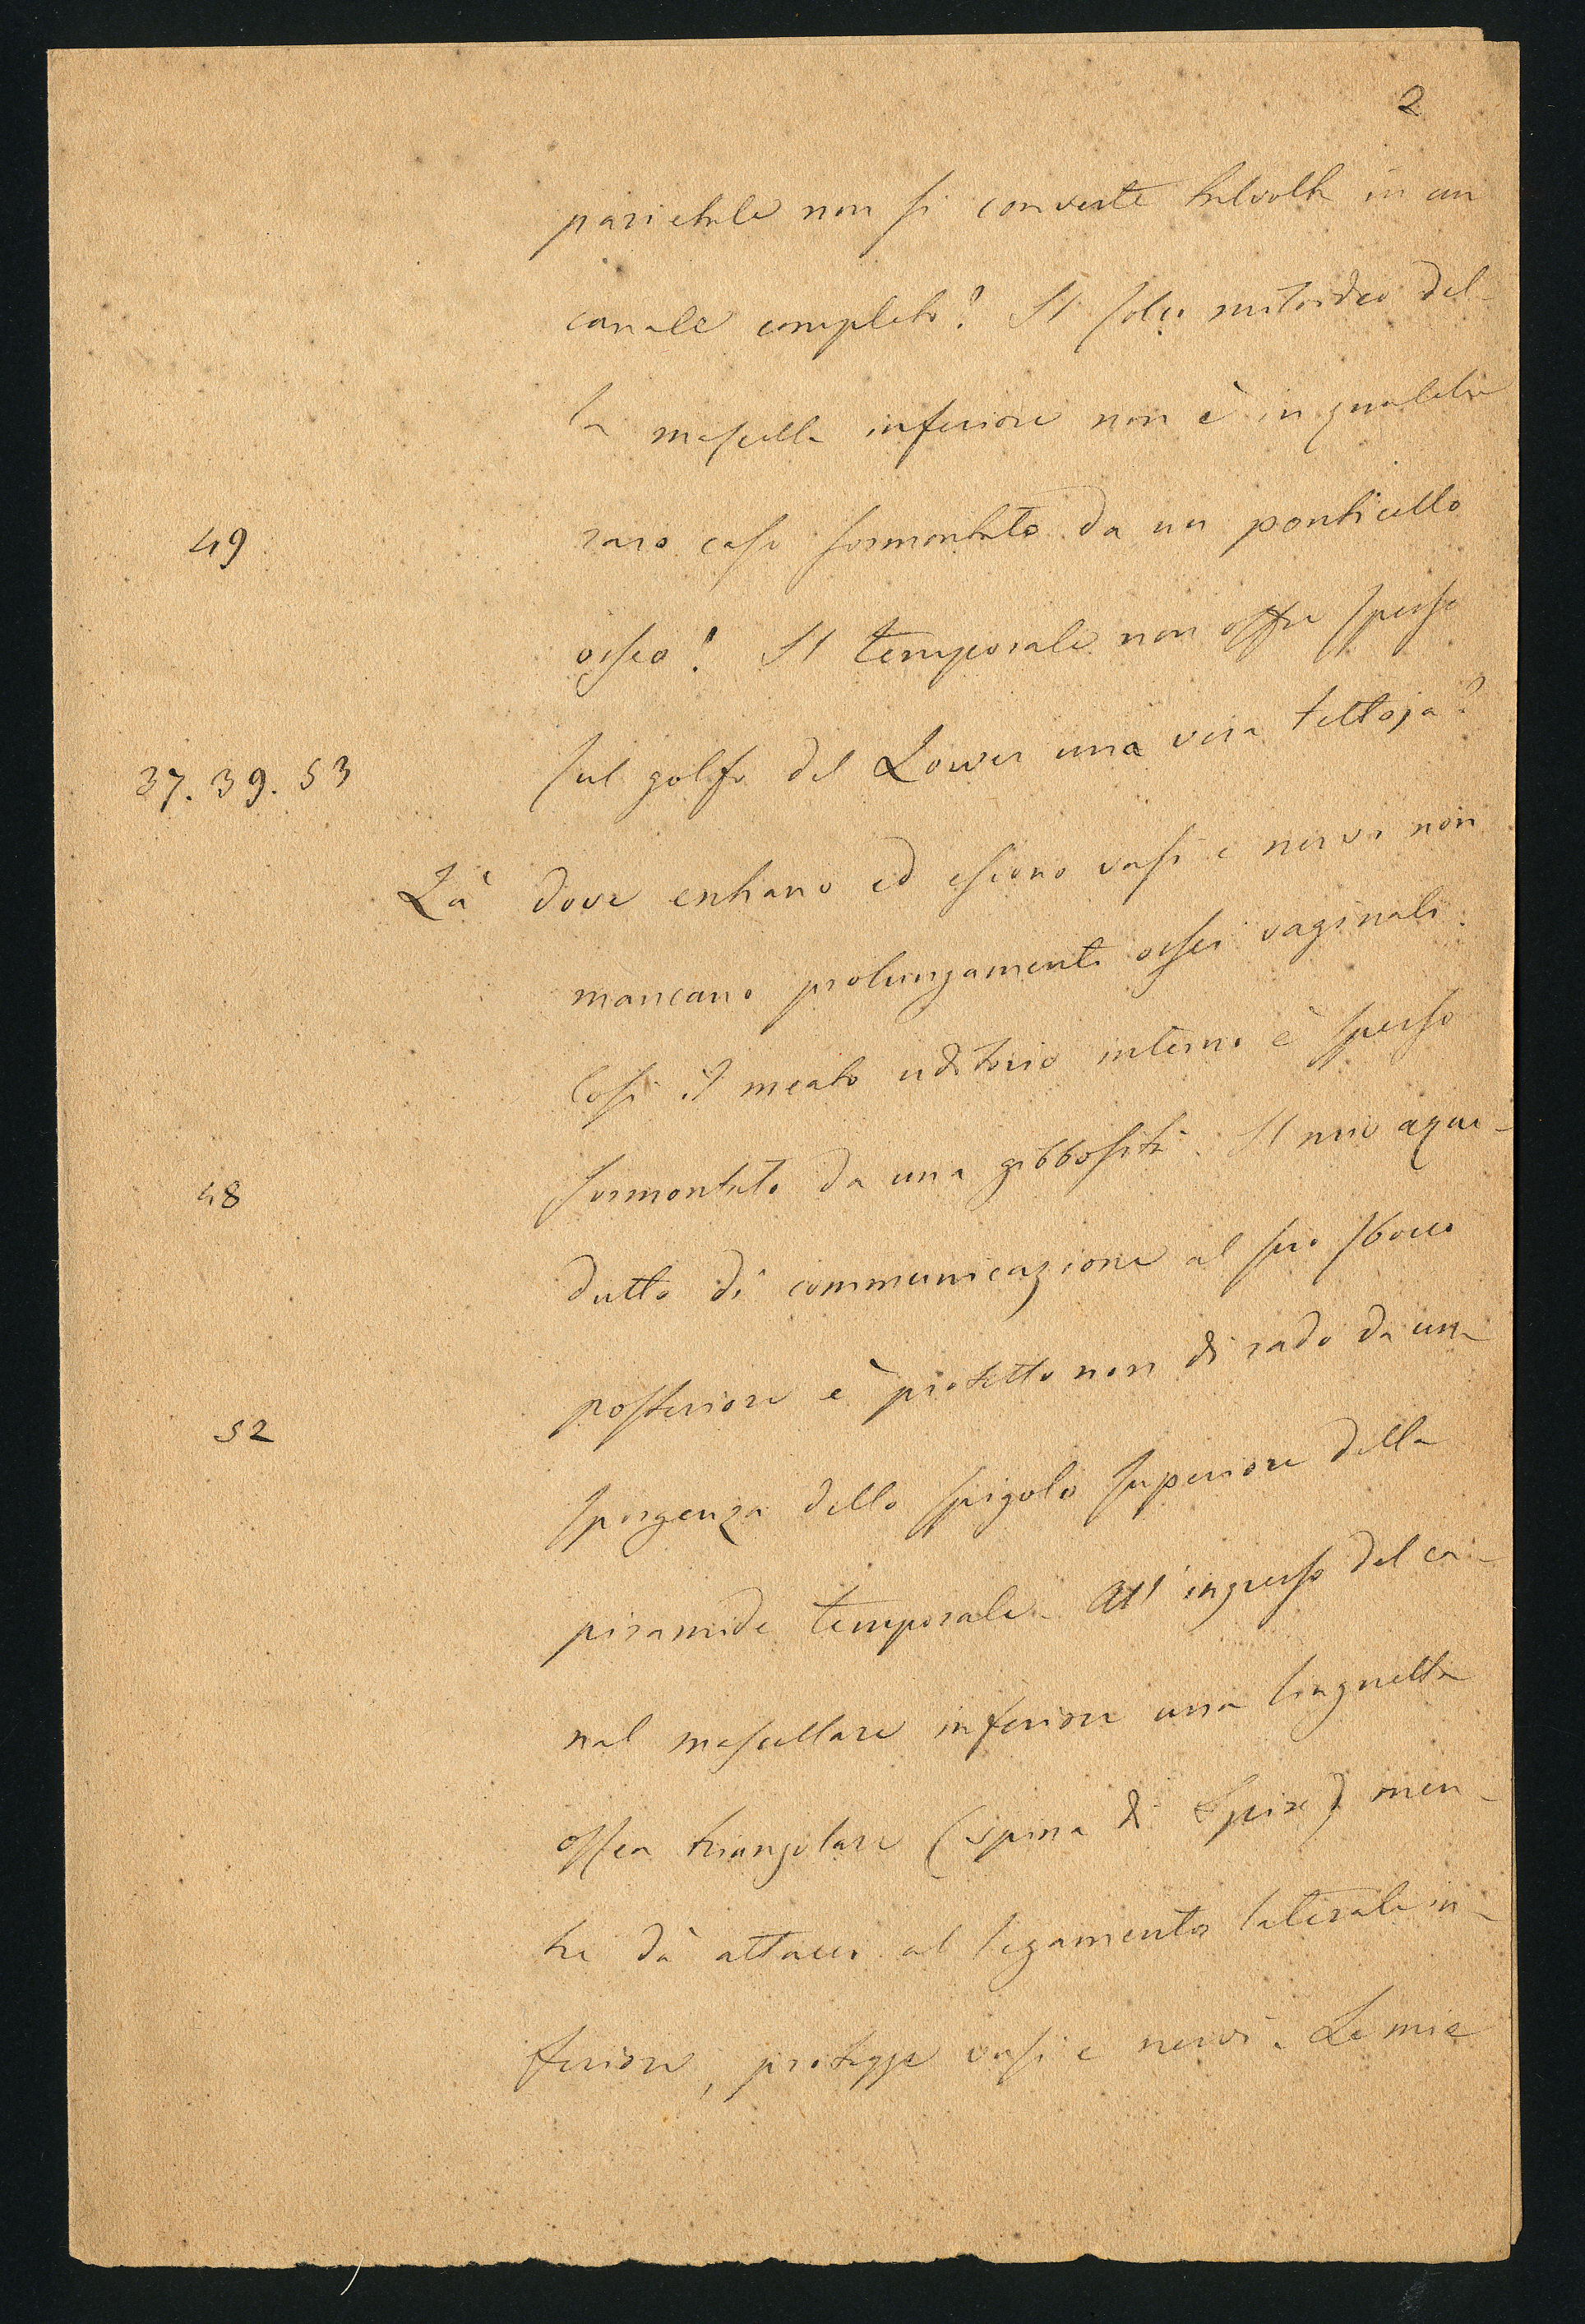 2
parietale non si converte talvolta in un
canale completo? Il solco miloideo del-
la mascella inferiore non è in qualche
49
raro caso sormontato da un ponticello
osseo? Il temporale non offre spesso
37. 39. 53
sul golfo del Lower una vera tettoja?
Là dove entrano ed escono vasi e nervi non
mancano prolungamenti ossei vaginali.
Così il meato uditorio interno è spesso
48
sormontato da una gibbosità. Il mio aque-
dutto di communicazione al suo sbocco
52
posteriore è protetto non di rado da una
sporgenza dello spigolo superiore della
piramide temporale. All'ingresso del ca-
nal mascellare inferiore una linguetta
ossea triangolare (spina di Spix) men-
tre dà attacco al legamento laterale in-
feriore, protegge vasi e nervi. Le mie